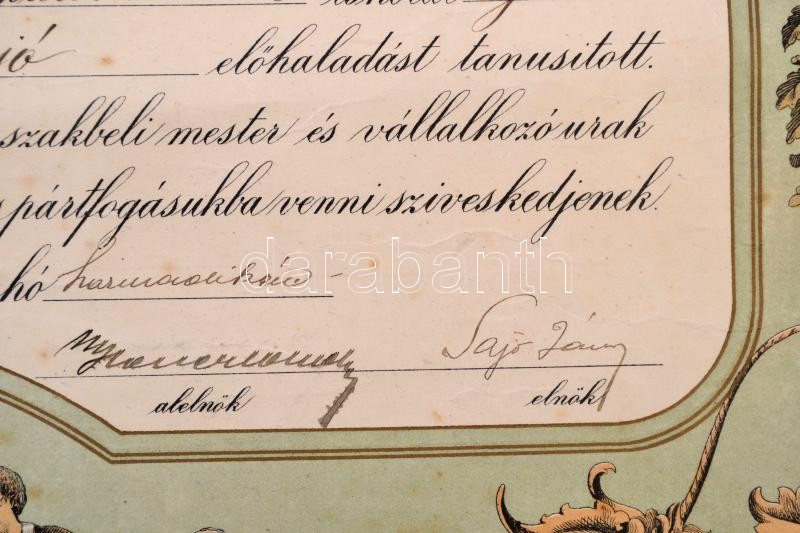 jó előhaladást tanusitott.
szakbeli mester és vállalkozó urak
pártfogásukba venni sziveskedjenek.
hó harmadikán
darabanth
Sajó János
alelnök elnök